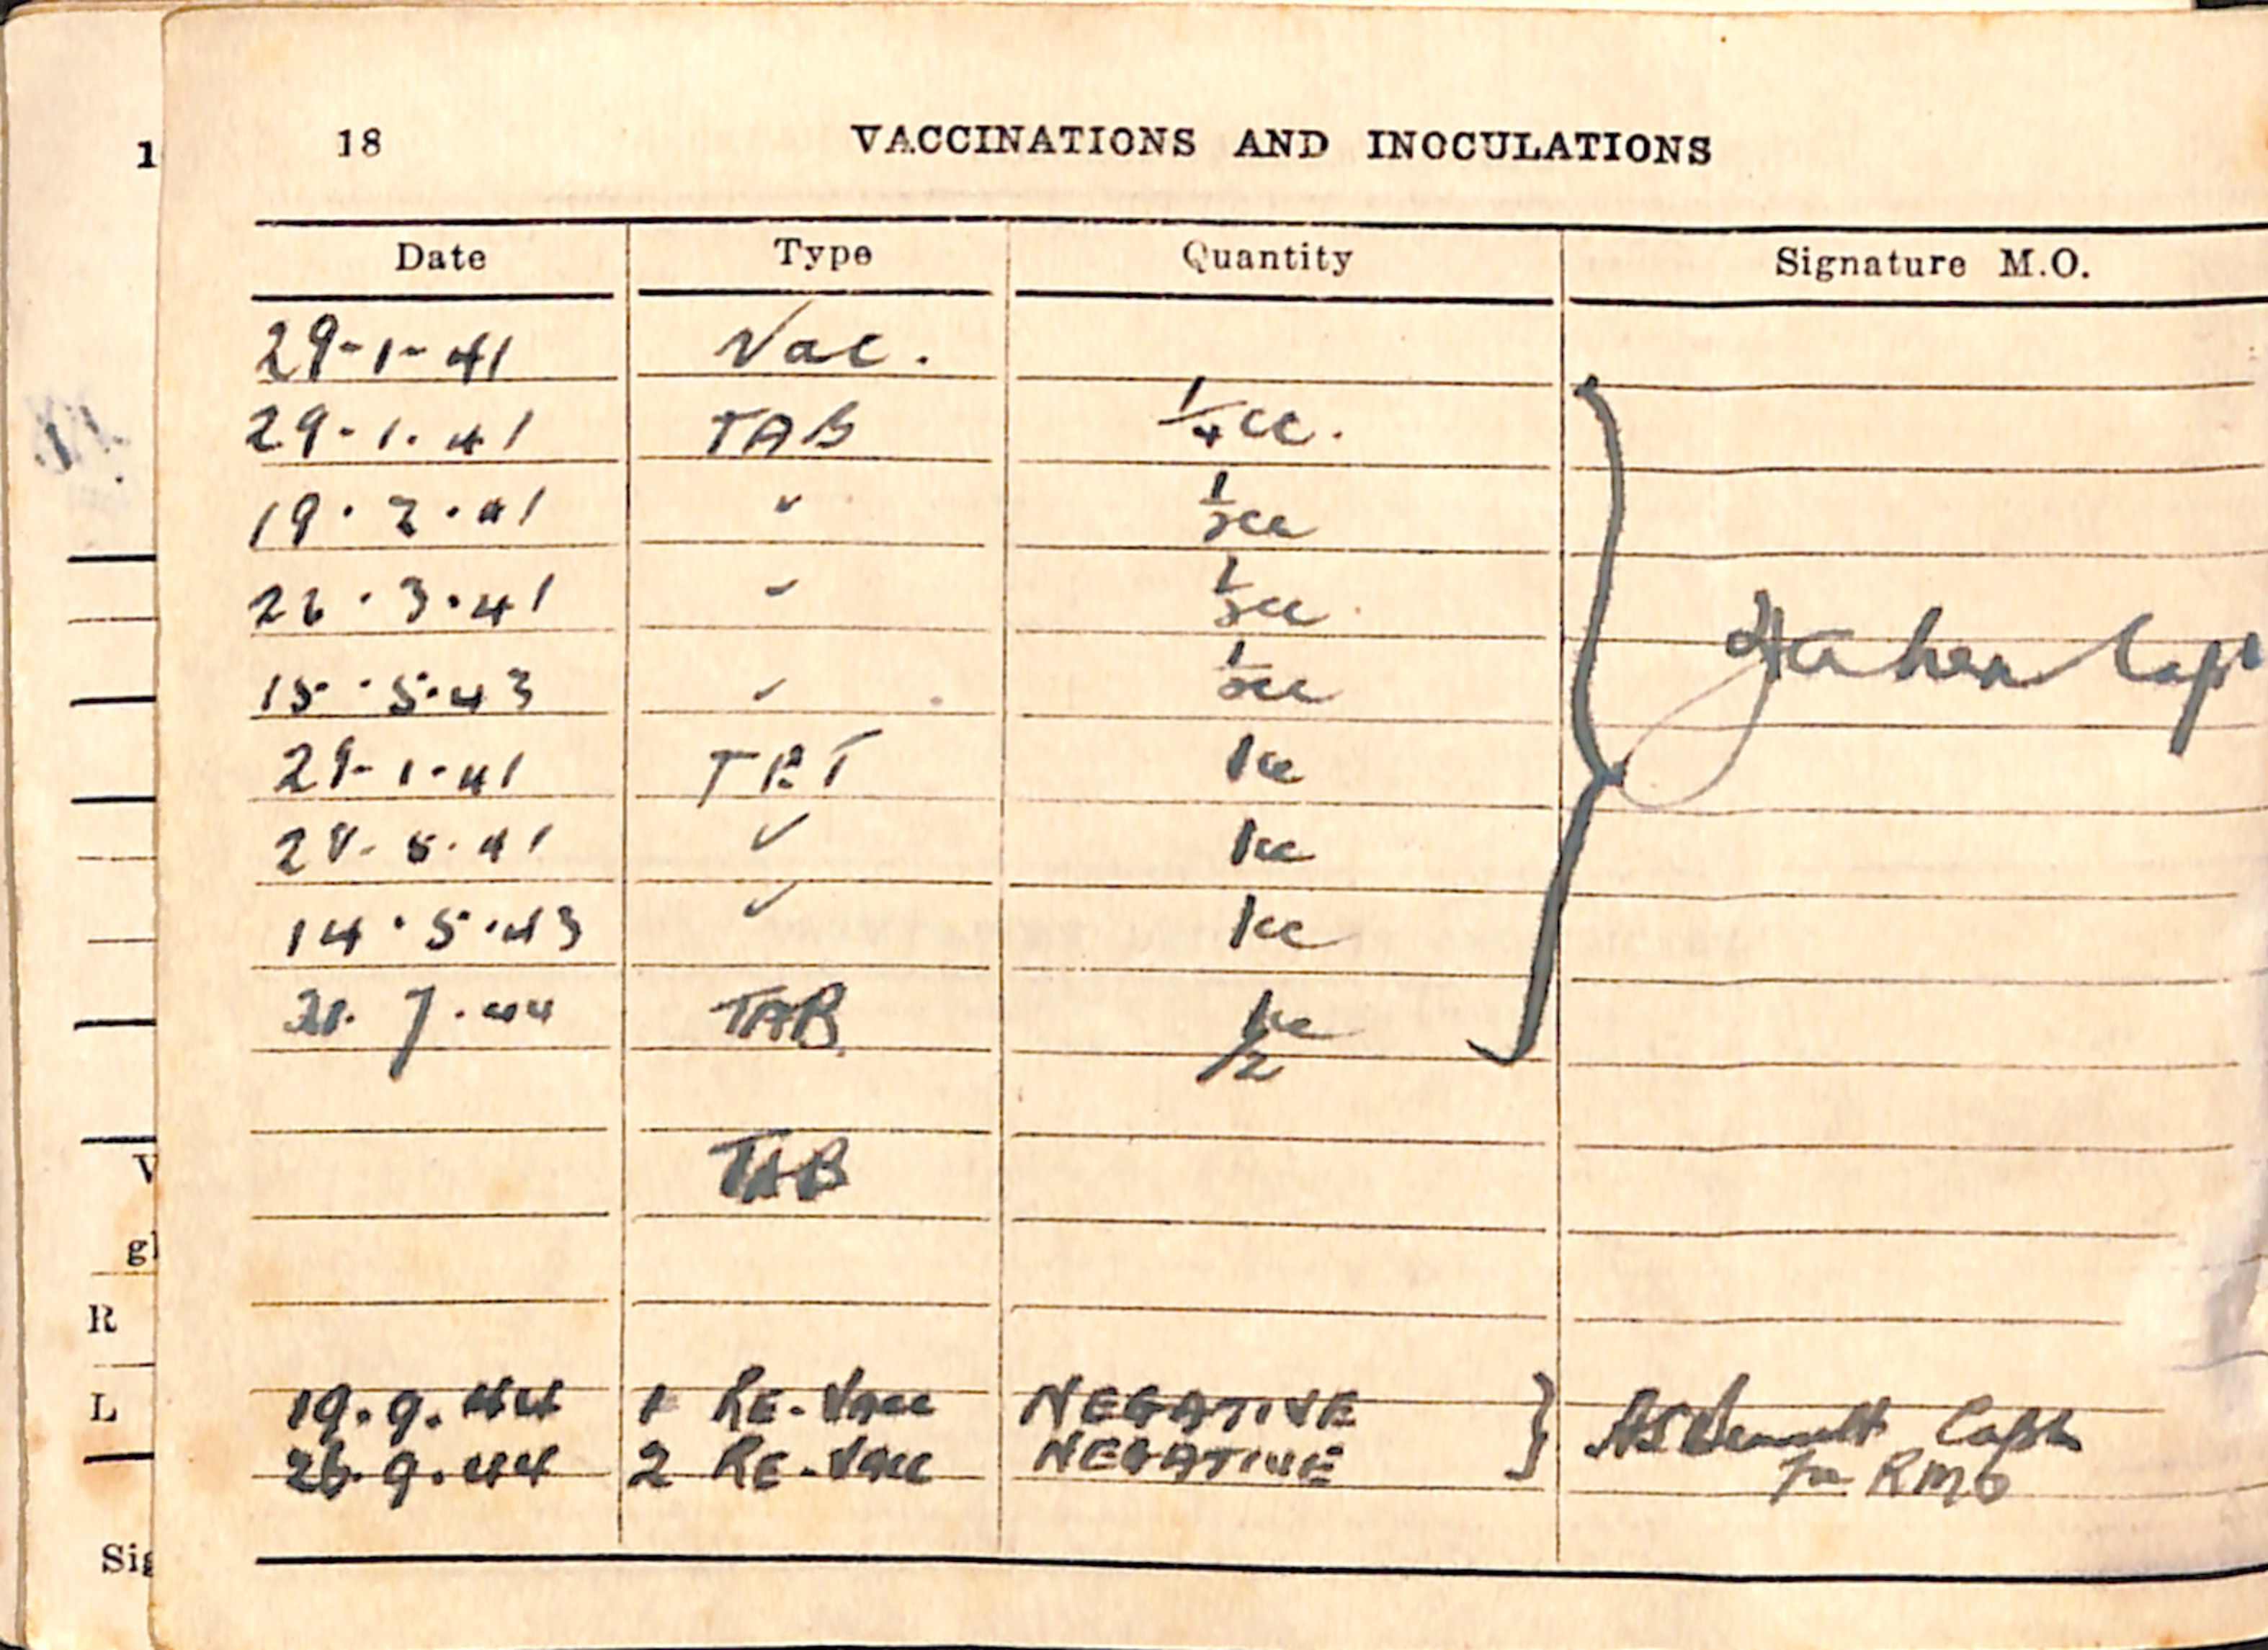 1
18 VACCINATIONS AND INOCULATIONS
Date Type Quantity Signature M.O.
29-1-41 Vac.
29-1-41 TAB 1/4 cc.
19.2.41 " 1/2 cc
26.3.41 " 1/2 cc
15.5.43 " 1/2 cc
Capt
29-1-41 1cc
41 " 1cc
14.5.43 " 1cc
7.44 TAB 1/2 cc
V
TAB
gl
R
L
19.9.44 1 RE-Vacc NEGATIVE Capt
26.9.44 2 RE-Vacc NEGATIVE for RMO
Sig